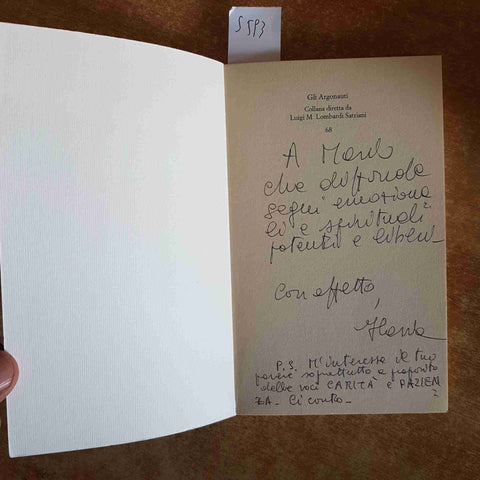 S593
Gli Argonauti
Collana diretta da
Luigi M. Lombardi Satriani
68
A
che diffonde
segni emoziona
li e spirituali
potenti e liberi_
Con affetto,
P.S. M'interessa il tuo
parere soprattutto a proposito
delle voci CARITÀ e PAZIEN
ZA_ Ci conto_